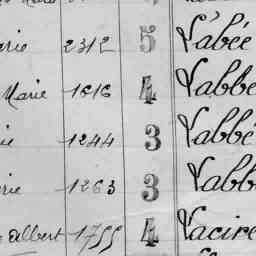 rie 2312 5 L'abée
Marie 1616 4 Labbe
ie 1244 3 Labbé
rie 1263 3 Labb
albert 1755 4 Lacire